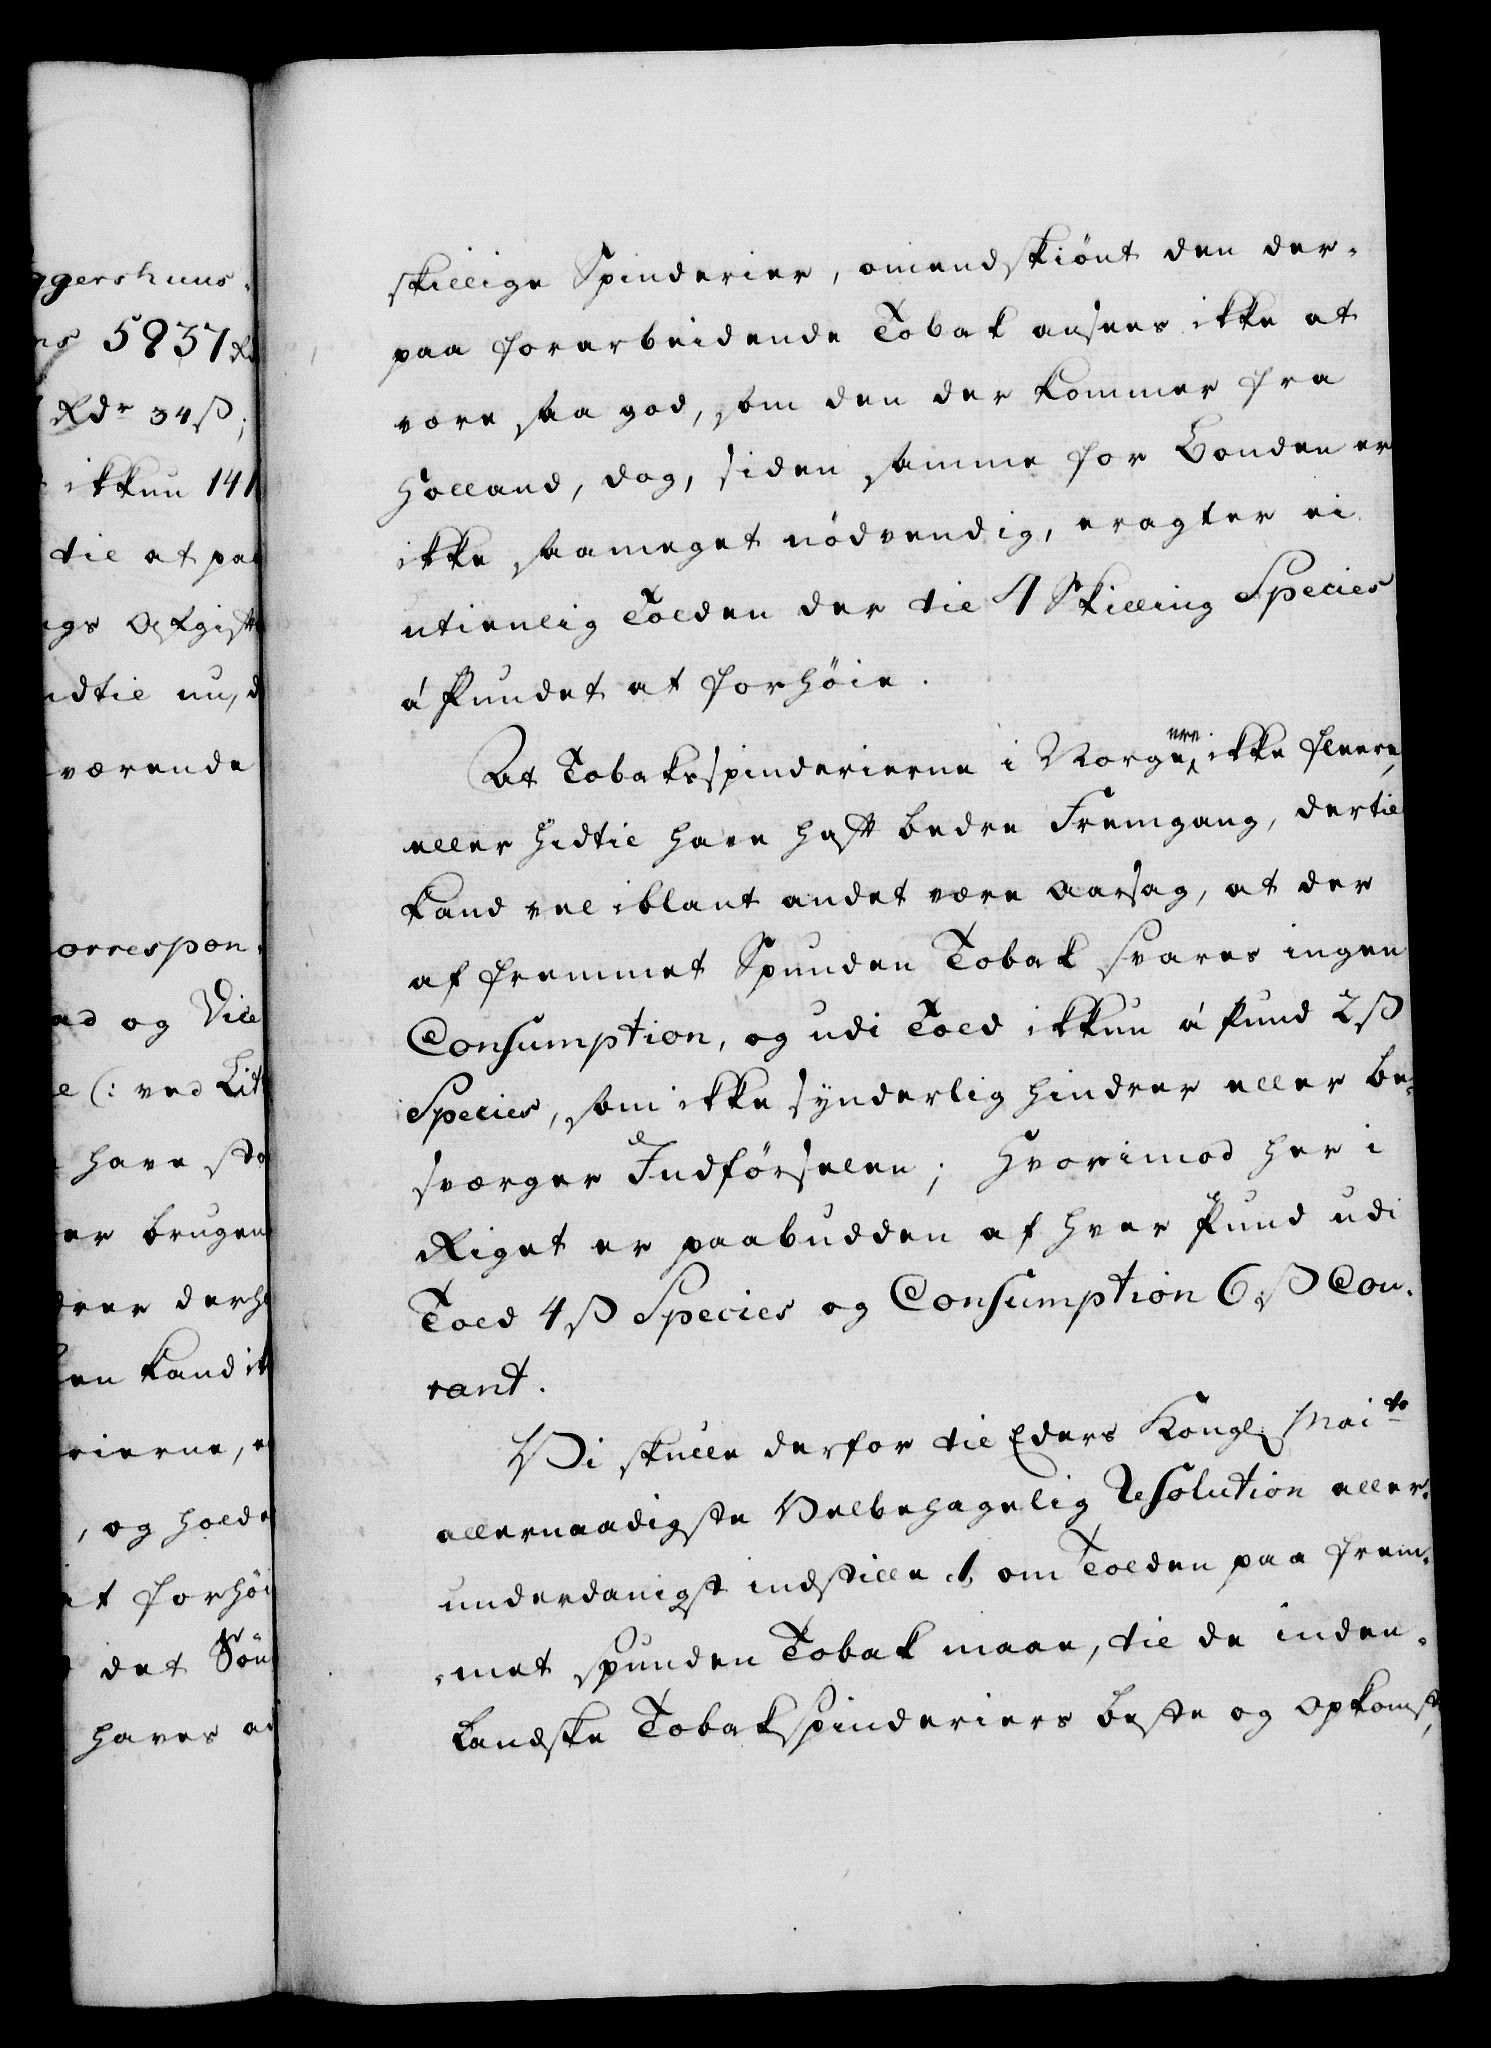 ggershuus-
5837 Rd
Rdr 34 ß;
ikkun 141
til at paa
ngs Afgift
ndtil nu, d
værende
orrespon-
ad og Vice
e (: ved Lit
have sto
er brugen
drer derh
en kand ik
rierne, e
, og holde
at forhöi
det Sön
haves a
skillige Spinderier, omendskiönt den der-
paa forarbeidende Tobak ansees ikke at
være saa god, som den der kommer fra
Holland, dog, siden samme for Bonden er
ikke saameget nödvendig, eragter ei
utienlig Tolden der til 4 Skilling Species
á Pundet at forhöie.
At Tobaksspinderierne i Norge ere ikke fleere,
eller hidtil have haft bedre Fremgang, dertil
kand vel iblant andet være Aarsag, at der
af fremmet Spunden Tobak svares ingen
Consumption, og udi Told ikkun á Pund 2 ß
Species, som ikke synderlig hindrer eller be-
sværger Indförselen; hvorimod her i
Riget er paabudden af hver Pund udi
Told 4 ß Species og Consumption 6 ß Cou-
rant.
Vi skulle derfor til Eders Kongl. Mai.te
allernaadigste Velbehagelig Resolution aller-
underdanigst indstille 1, om Tolden paa frem-
-met spunden Tobak maae, til de inden-
landske Tobakspinderiers beste og Opkomst,